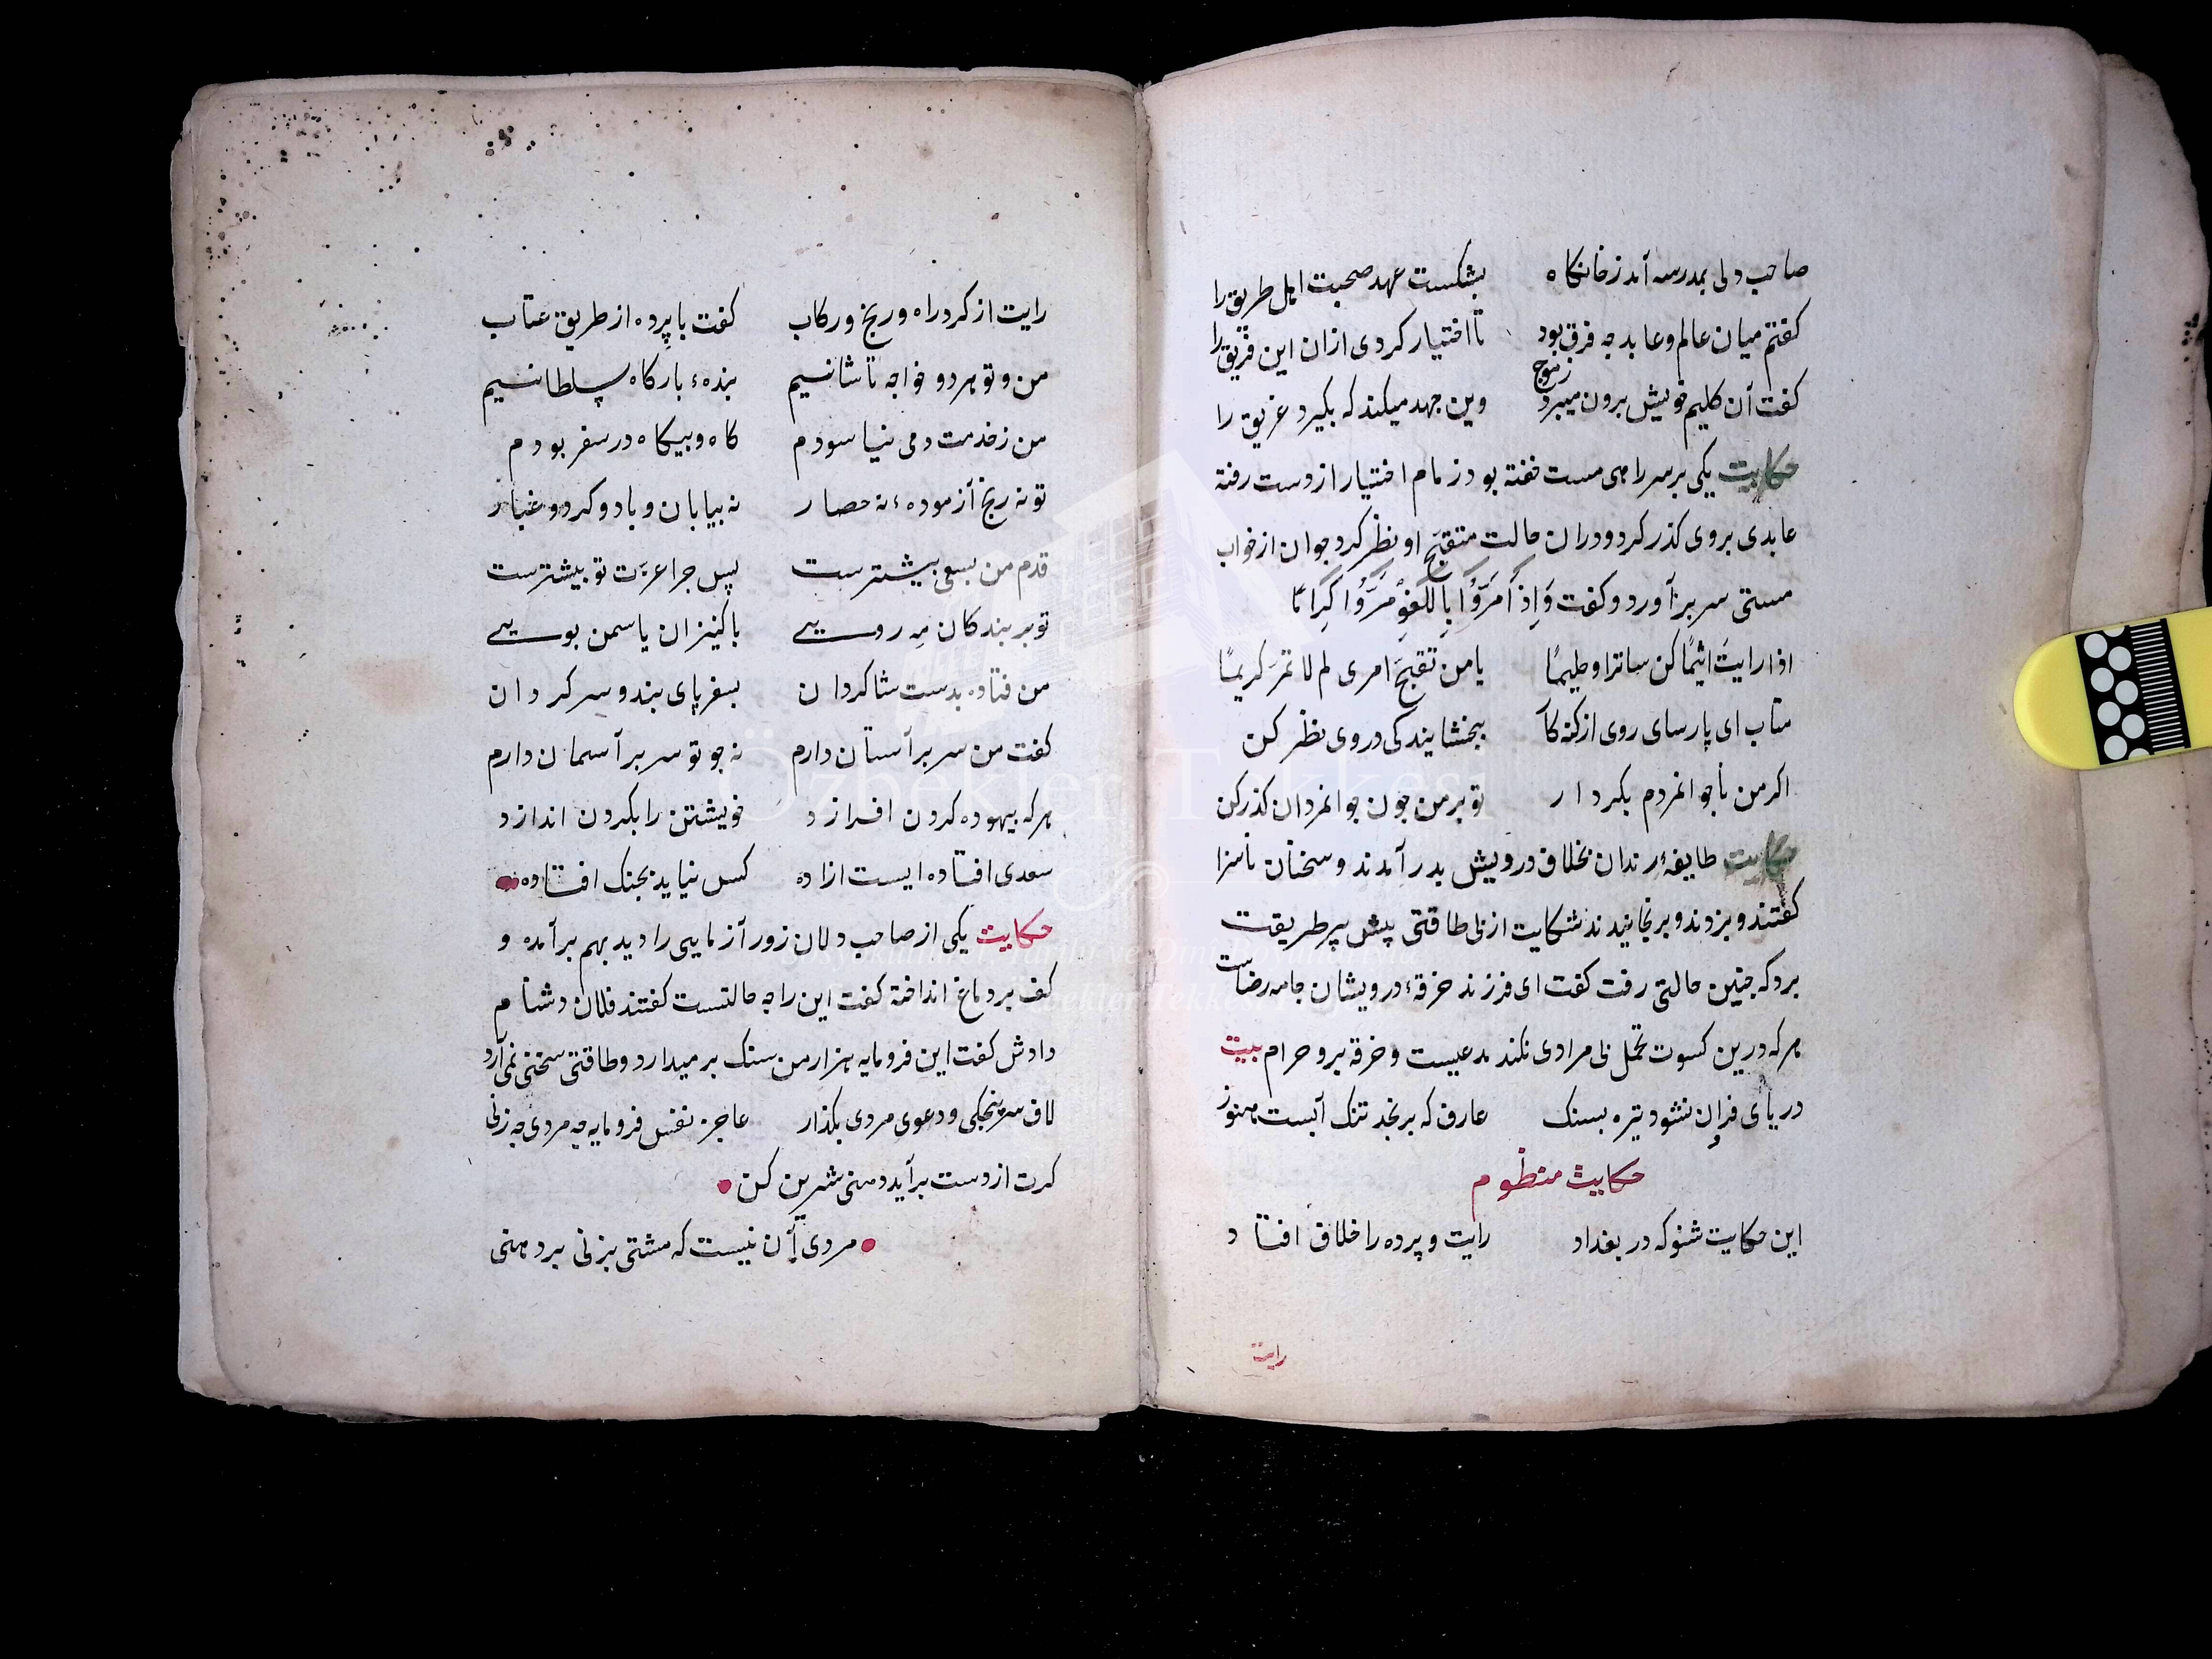 صاحب دلی بمدرسه آمد ز خانکاه بشکست عهد صحبت اهل طریق را
کفتم میان عالم و عابد چه فرق بود تا اختیار کردی ازان این فریق را
کفت آن کلیم خویش برون میبرد زموج وین جهد میکند که بکیرد غریق را
حکایت یکی بر سر راهی مست خفته بود زمام اختیار از دست رفته
عابدی بروی کذر کرد و دران حالت متقبح او نظر کرد جوان از خواب
مستی سر برآورد و کفت وَاِذَا مَرُّوا بِاللَّغْوِ مَرُّوا كِرَامًا
اذا رایت اثیمًا کن ساترا و حلیمًا یا من تقبح امری لم لا تمر کریمًا
متاب ای پارسای روی از کنه کا ببخشایندکی در وی نظر کن
اکر من ناجوانمردم بکردار تو بر من جون جوانمردان کذر کن
حکایت طایفهٔ رندان بخلاف درویش بدر آمدند و سخنان ناسزا
کفتند و بزوند و برنجانیدند شکایت از بی طاقتی پیش پیر طریقت
برد که جنین حالتی رفت کفت ای فرزند خرقهٔ درویشان جامه رضاست
هر که درین کسوت تحمل بی مرادی نکند مدعیست و خرقه برو حرام بیت
دریای فراوان نشود تیره بسنک عارف که برنجد تنک آبست هنوز
حکایت منظوم
این حکایت شنو که در بغداد رایت و پرده را خلاف افتاد
رایت
رایت از کرد راه و رنج و رکاب کفت با پرده از طریق عتاب
من و تو هر دو خواجه تاشانیم بندهٔ بارکاه سلطانیم
من ز خدمت دمی نیاسودم کاه و بیکاه در سفر بودم
تو نه رنج آزمودهٔ نه حصار نه بیابان و باد و کرد و غبار
قدم من بسعی بیشترست پس جرا عزت تو بیشترست
تو بر بندکان مه رویی با کنیزان یاسمن بویی
من فتاده بدست شاکردان بسفر پای بند و سرکردان
کفت من سر بر آستان دارم نه جو تو سر بر آسمان دارم
هر که بیهوده کردن افرازد خویشتن را بکردن اندازد
سعدی افتاده ایست ازاده کس نیاید بجنک افتاده
حکایت یکی از صاحب دلان زور آزمایی را دید بهم برآمده و
کف بر دماغ انداخته کفت این را چه حالتست کفتند فلان دشنام
دادش کفت این فرومایه هزار من سنک بر میدارد و طاقتی سخنی نمی آرد
لاف سر پنجکی و دعوی مردی بکذار عاجز نفس فرومایه چه مردی چه زنی
کرت از دست برآید دهنی شیرین کن
مردی آن نیست که مشتی بزنی بر دهنی